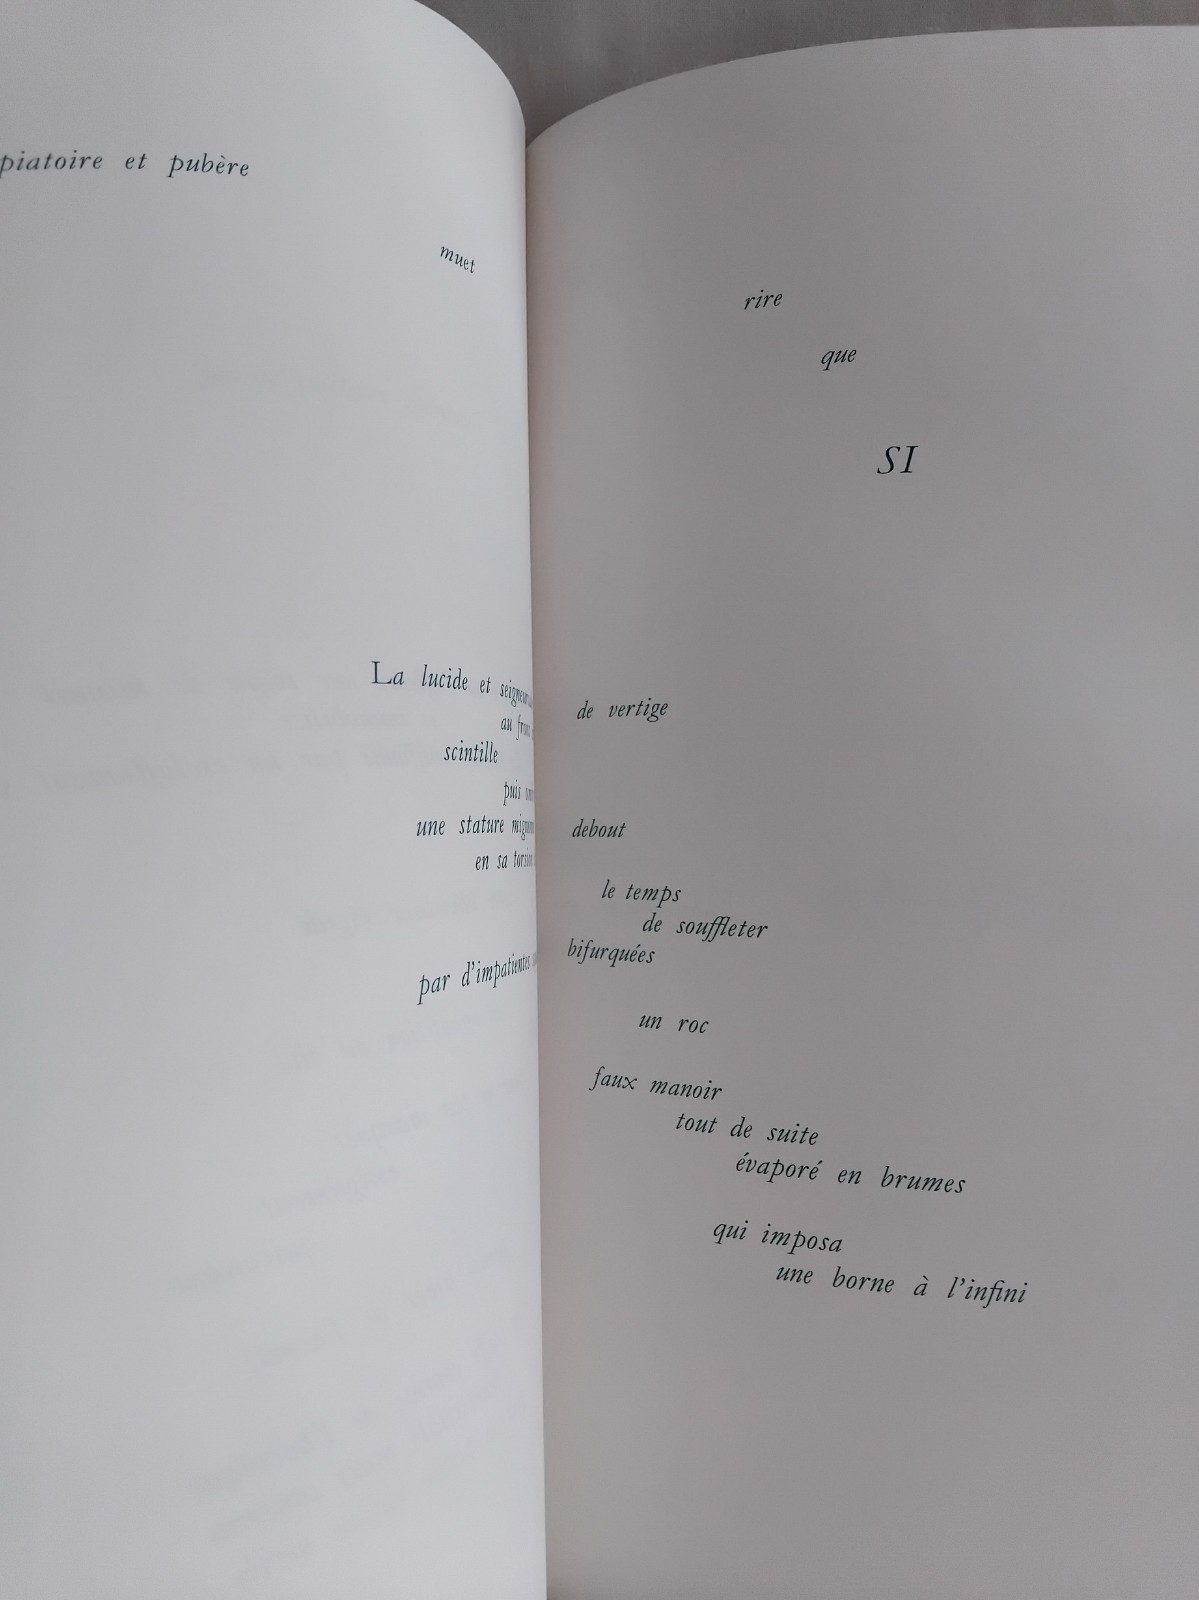 piatoire et pubère
muet
La lucide et
au
scintille
puis
une stature
en sa
par d'impatientes
rire
que
SI
de vertige
debout
le temps
de souffleter
bifurquées
un roc
faux manoir
tout de suite
évaporé en brumes
qui imposa
une borne à l'infini